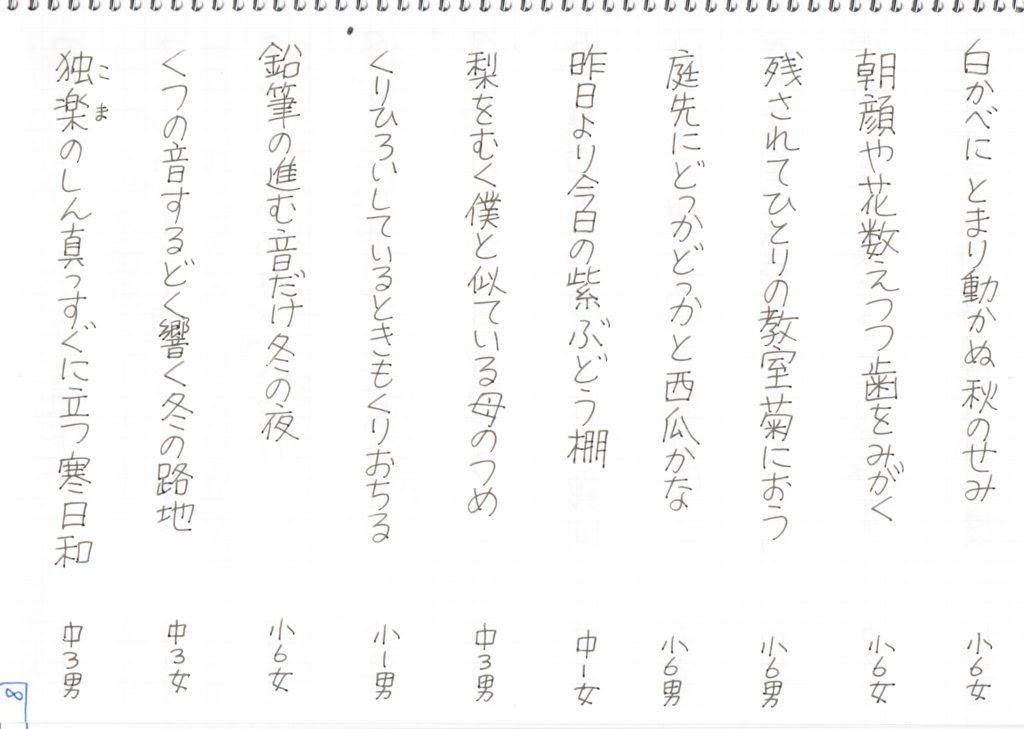 白かべにとまり動かぬ秋のせみ 小6女
朝顔や花数えつつ歯をみがく 小6女
残されてひとりの教室菊におう 小6男
庭先にどっかどっかと西瓜かな 小6男
昨日より今日の紫ぶどう棚 中1女
梨をむく僕と似ている母のつめ 中3男
くりひろいしているときもくりおちる 小1男
鉛筆の進む音だけ冬の夜 小6女
くつの音するどく響く冬の路地 中3女
独楽のしん真っすぐに立つ寒日和 中3男
こま
8